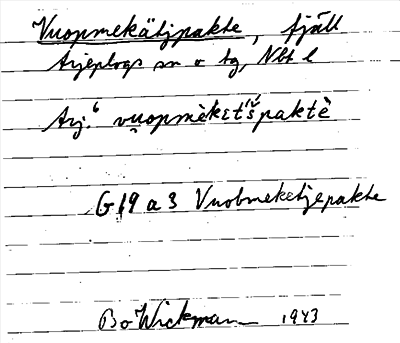 Vuopmekätjpakte, fjäll
Arjeplogs sn o tg, Nbt l
Arj.⁶ vu̯opmèkɛtš́paktè
G 19 a 3 Vuobmeketjepakte
Bo Wickman 1943